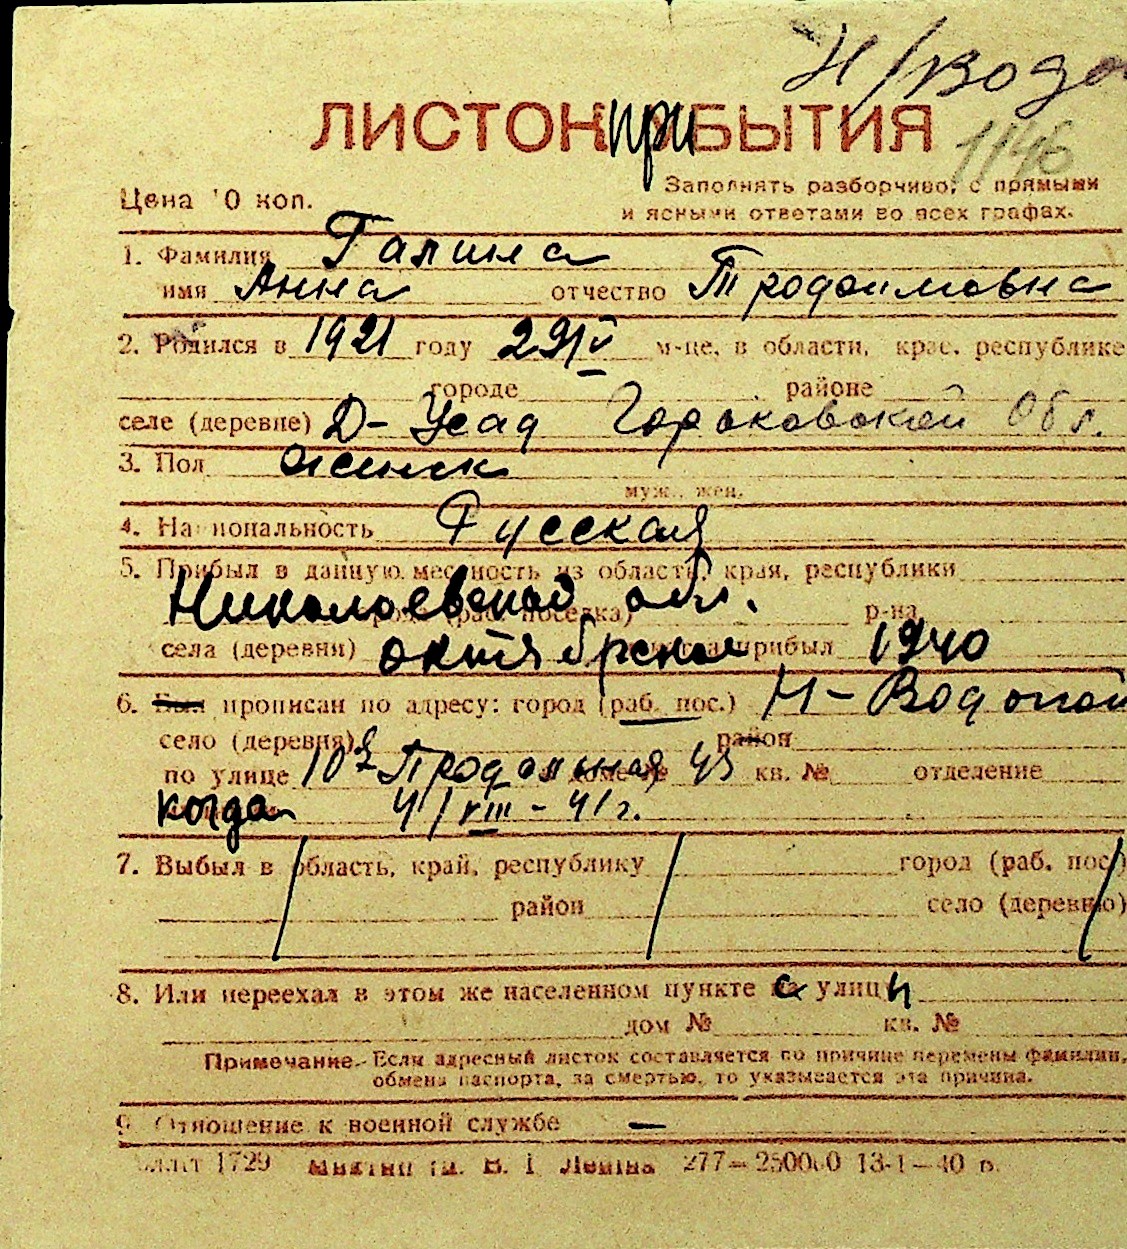 Н/Водо
ЛИСТОК ПРИБЫТИЯ
1146
Цена 10 коп.
Заполнять разборчиво, с прямыми
и ясными ответами во всех графах.
1. Фамилия Галина
имя Анна отчество Трофимовна
2. Родился в 1921 году 29/V м-це, в области, крае, республике
городе районе
селе (деревне) Д-Усад Горьковской Обл.
3. Пол женск
муж., жен.
4. Национальность Русская
5. Прибыл в данную местность из области, края, республики
Николаевской обл.
города (раб. поселка) р-на
села (деревни) октябрское прибыл 1940
6. Был прописан по адресу: город (раб. пос.) Н-Водопой
село (деревня) район
по улице 10я Продольная дом № 43 кв. № отделение
когда 4/VIII-41г.
7. Выбыл в область, край, республику город (раб. пос.)
район село (деревню)
8. Или переехал в этом же населенном пункте с улицы
дом № кв. №
Примечание. Если адресный листок составляется по причине перемены фамилии,
обмена паспорта, за смертью, то указывается эта причина.
9. Отношение к военной службе —
1729 В. І. Леніна 277—250000 13-1—40 р.